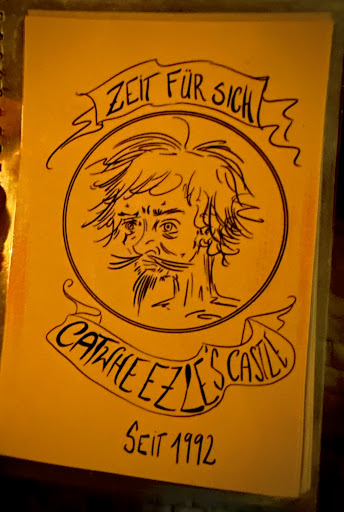 ZEIT FÜR SICH
CATWHEEZLE'S CASTLE
SEIT 1992